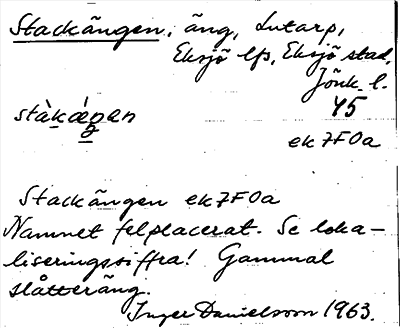 Stackängen, äng, Lutarp,
Eksjö lfs, Eksjö stad,
Jönk. l.
stàkæ̀ŋen 45
ek 7F0a
Stackängen ek7F0a
Namnet felplacerat. Se loka-
liseringssiffra! Gammal
slåtteräng.
Inger Danielsson 1963.